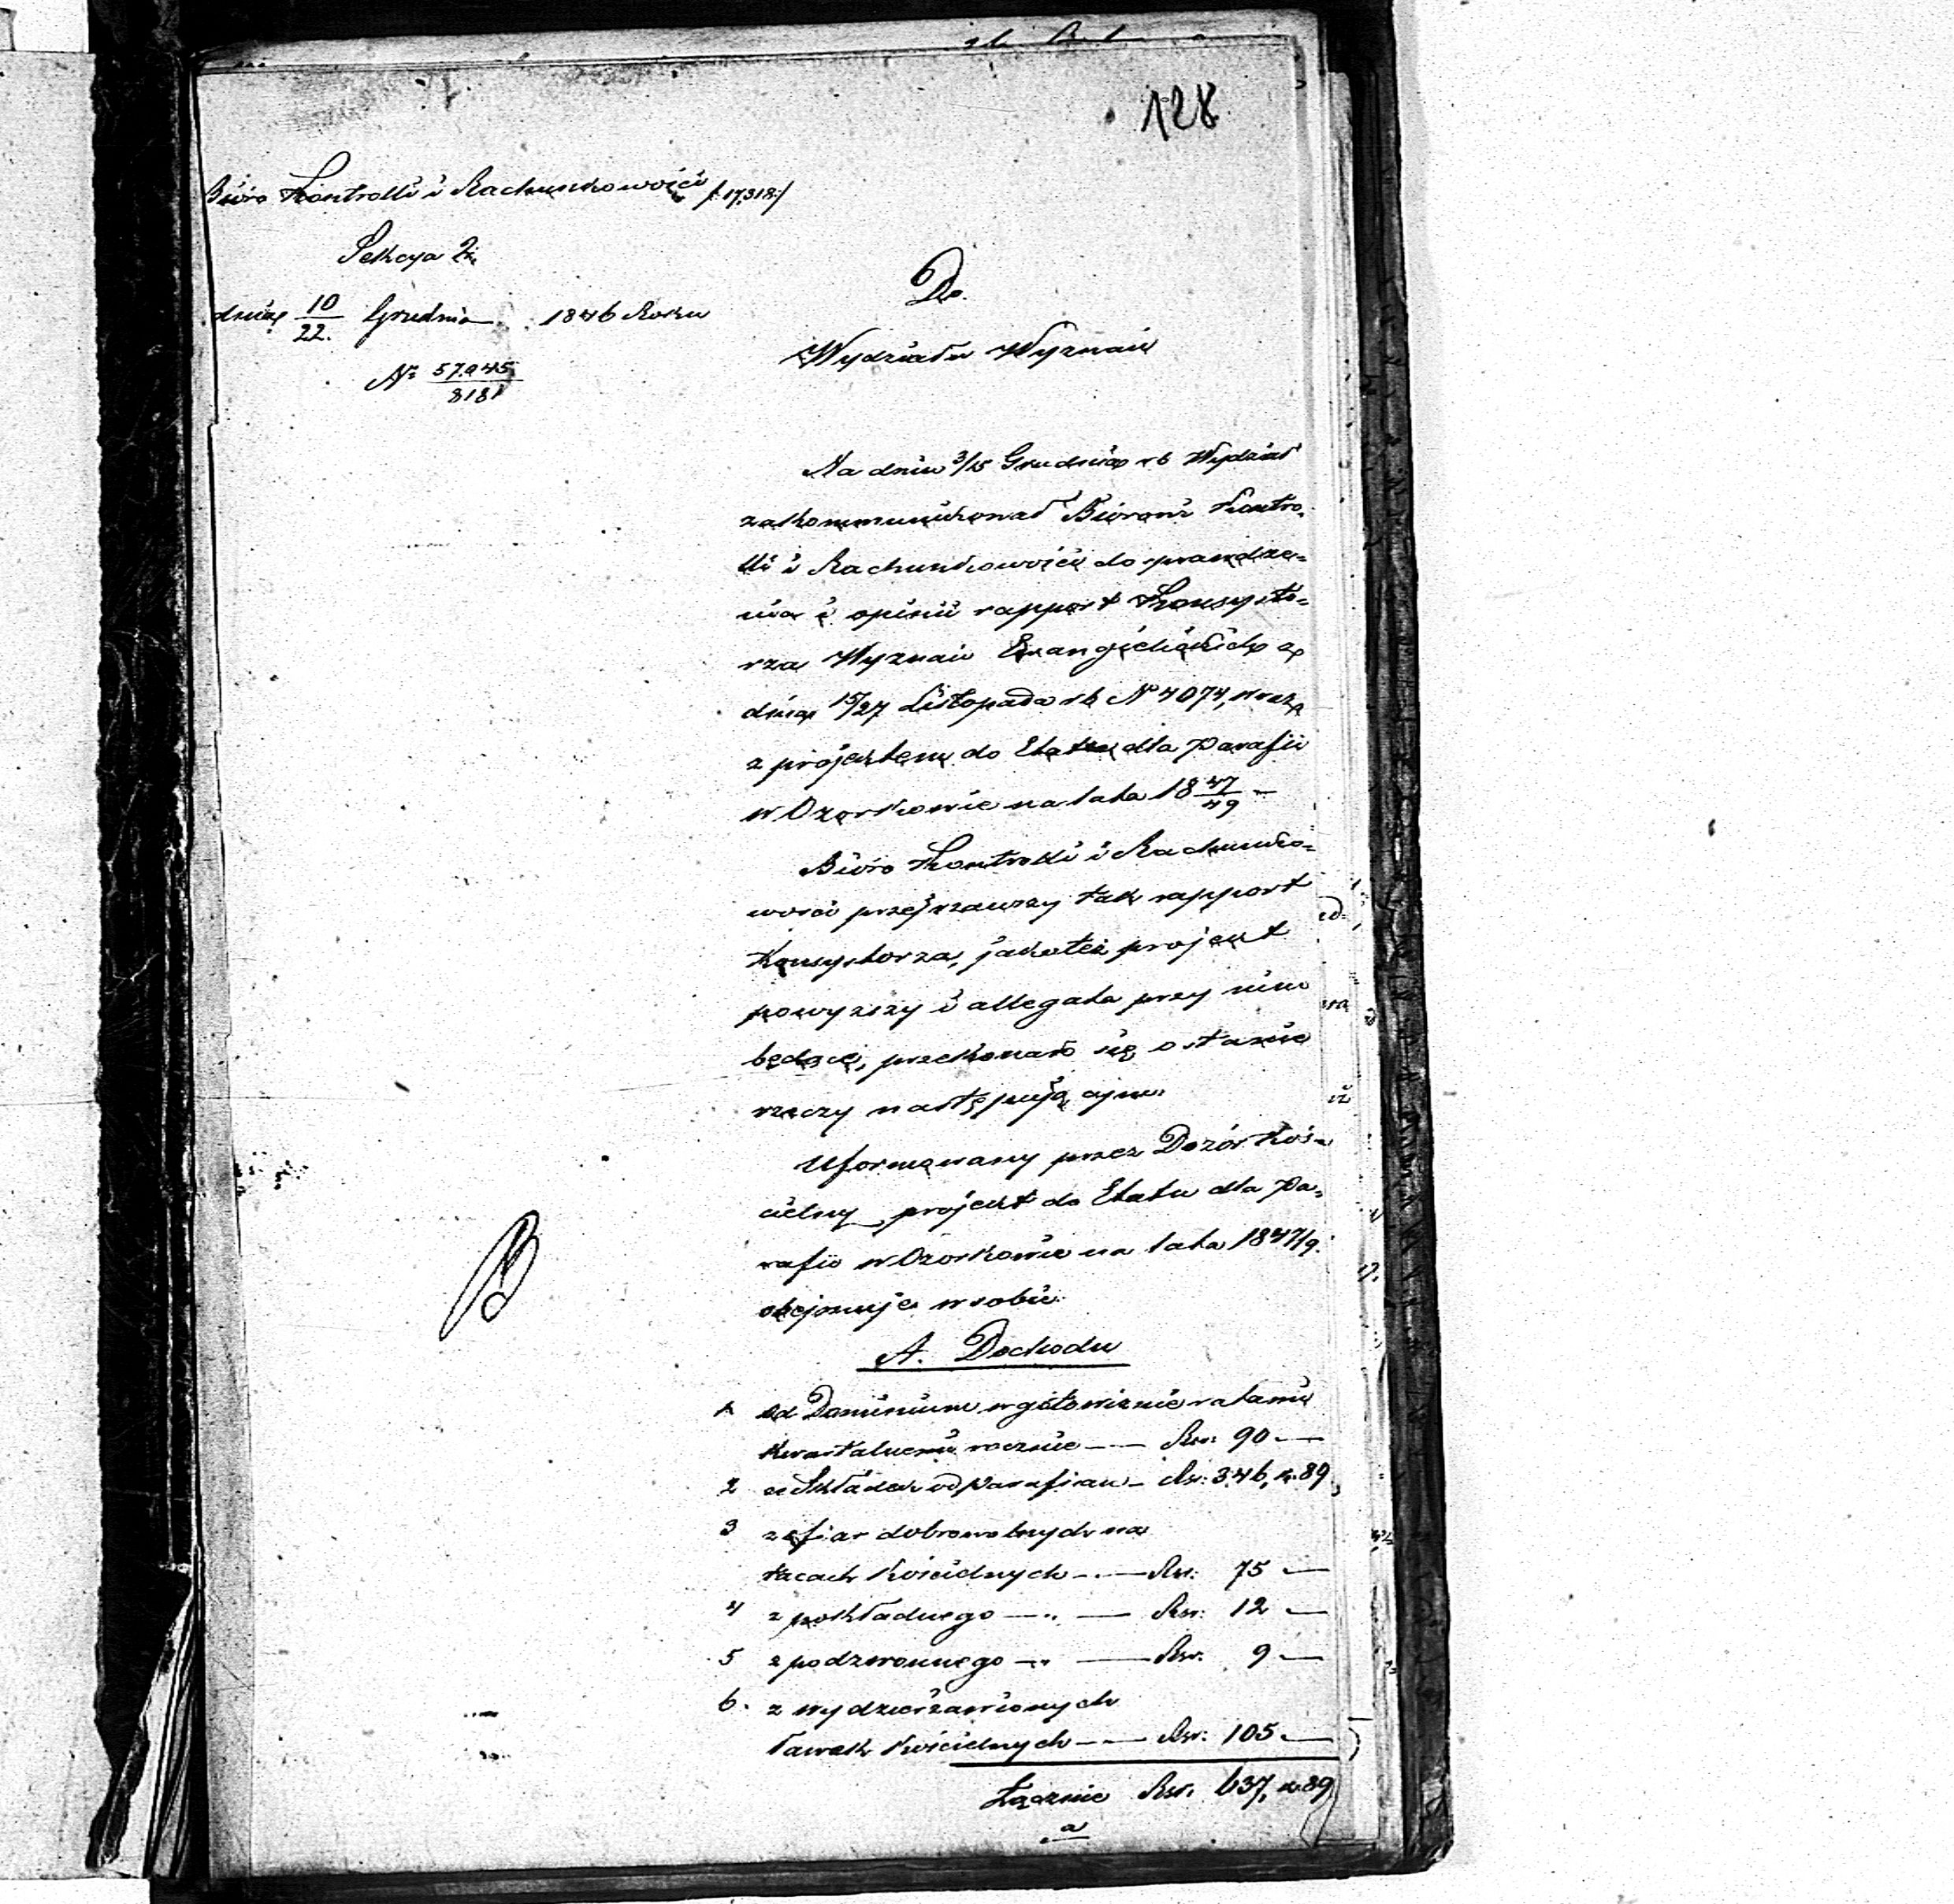 128
Biuro Kontrolli i Rachunkowości /:17,318:/
Sekcya 2.
dnia 10/22. Grudnia 1846 Roku
N° 57.945/8181
Do
Wydziału Wyznań
Na dniu 3/15 Grudnia rb Wydział
zakommunikował Biórowi Kontro-
lli i Rachunkowości do sprawdze-
nia i opinii rapport Konsysto-
rza Wyznań Ewangielickich z
dnia 15/27 Listopada rb N° 4074, wraz
z projektem do Etatu dla Parafii
w Ozorkowie na lata 18 47/49 —
Bióro Kontrolli i Rachunko-
wości przejrzawszy tak rapport
Konsystorza, jakoteż projekt
powyższy i allegata przy nim
będące, przekonało się o stanie
rzeczy następującym.
Uformowany przez Dozór Koś-
cielny projekt do Etatu dla Pa-
rafii w Ozorkowie na lata 1847/9.
obejmuje w sobie:
A. Dochodu
1 od Dominium w gotowiznie ratami
kwartalnemi rocznie — Rsr: 90 —
2 ze Składek od Parafian — Rsr: 346, k. 89
3 z ofiar dobrowolnych na
tacach Kościelnych — Rsr: 75 —
4 z pokładnego — Rsr: 12 —
5 z podzwonnego — Rsr: 9 —
6. z wydzierżawionych
ławek Kościelnych — Rsr: 105 —
Łącznie Rsr. 637, k. 89
a